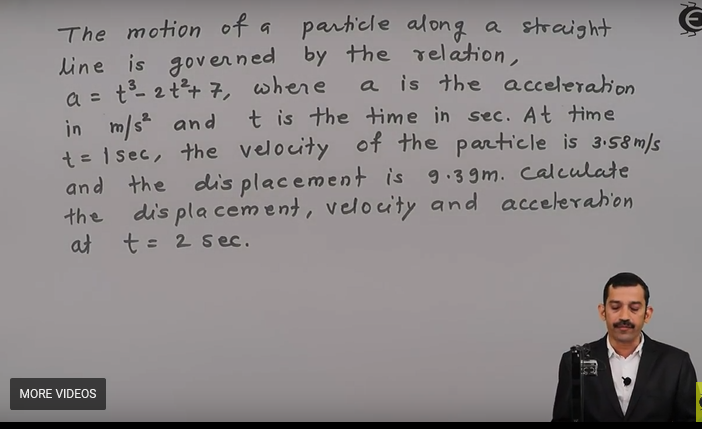 The motion of a particle along a straight
line is governed by the relation,
a = t³- 2t²+ 7, where a is the acceleration
in m/s² and t is the time in sec. At time
t = 1 sec, the velocity of the particle is 3.58 m/s
and the displacement is 9.39m. Calculate
the displacement, velocity and acceleration
at t = 2 sec.
MORE VIDEOS